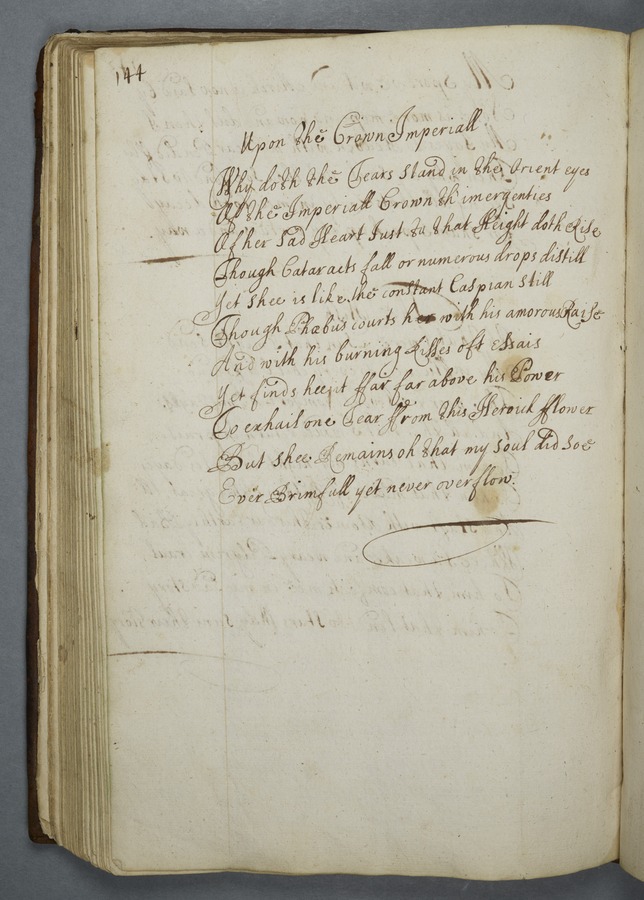 144
Upon the Crown Imperiall
Why doth the Tears stand in the Orient eyes
Of the Imperiall Crown th' imergenties
Of her Sad Heart Just to that Height doth Rise
Though Cataracts fall or numerous drops distill
Yet shee is like the constant Caspian still
Though Phœbus courts her with his amorous Raise
And with his burning kisses oft essais
Yet finds hee it ffar far above his Power
To exhail one Tear ffrom this Heroick fflower
But shee Remains oh that my soul did soe
Ever Brimfull yet never overflow.